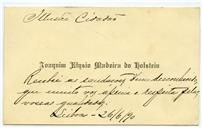 Illustre Cidadão
Joaquim Elysio Madeira do Holstein
Recebei as saudações d'um desconhecido
que muito vos aprecia e respeita pelas
vossas qualidades.
Lisboa - 26/6/90